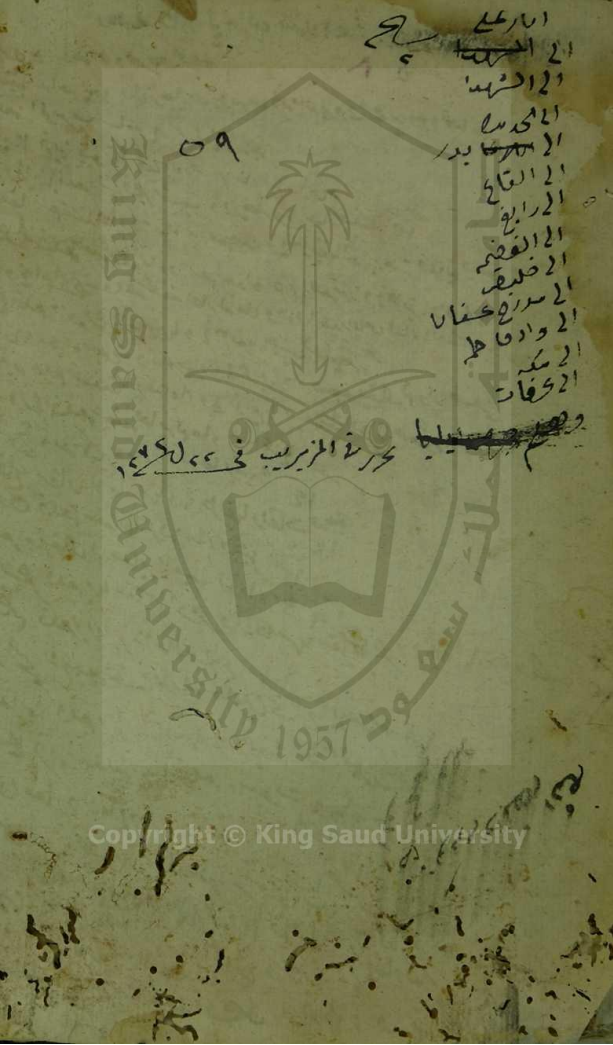 ابار علي
الى الشهدا
الى الشهدا
الى الجديده
الى بدر
٥٩
الى القاع
الى رابغ
الى القضيمه
الى خليص
الى مدرج عسفان
الى وادي فاطمه
الى مكه
الى عرفات
حررت المزيريب في ٢٢ ل
King Saud University
جامعة الملك سعود
1957
Copyright © King Saud University